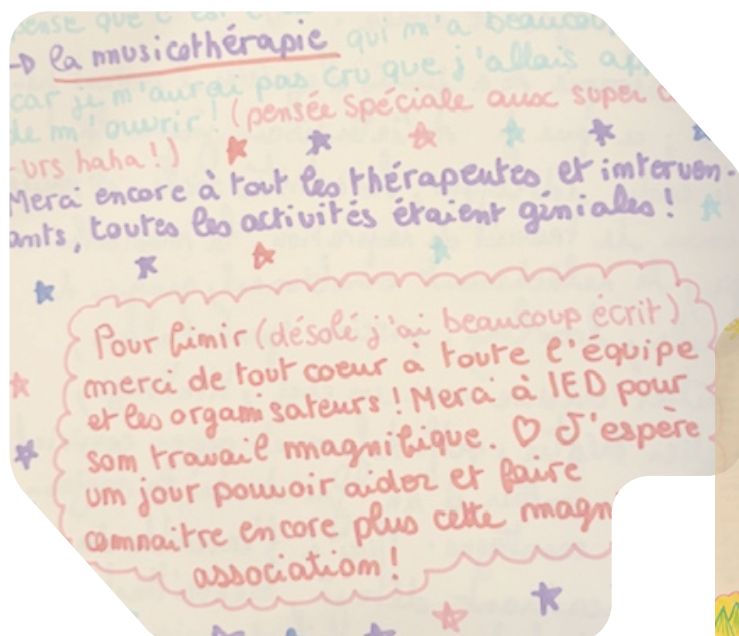 pense que c'est
→ la musicothérapie qui m'a beaucou
car je m'aurai pas cru que j'allais
de m'ouvrir! (pensée spéciale aux super
urs haha!)
Merci encore à tout les thérapeutes et interven-
ants, toutes les activités étaient géniales!
Pour finir (désolé j'ai beaucoup écrit)
merci de tout coeur à toute l'équipe
et les organisateurs! Merci à IED pour
son travail magnifique. ♡ J'espère
un jour pouvoir aider et faire
connaitre encore plus cette magn
association!